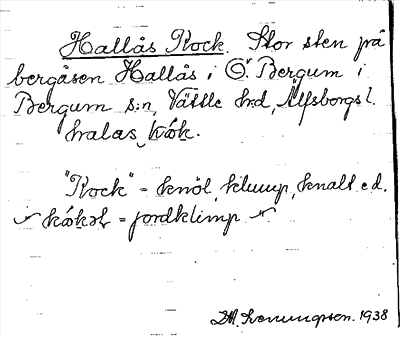 Hallås Kock. Stor sten på
bergåsen Hallås i Ö. Bergum i
Bergum s:n, Vättle hd, Älfsborgs l.
halas kók.
"Kock" = knöl, klump, knalt e.d.
kókəl = jordklimp
1938